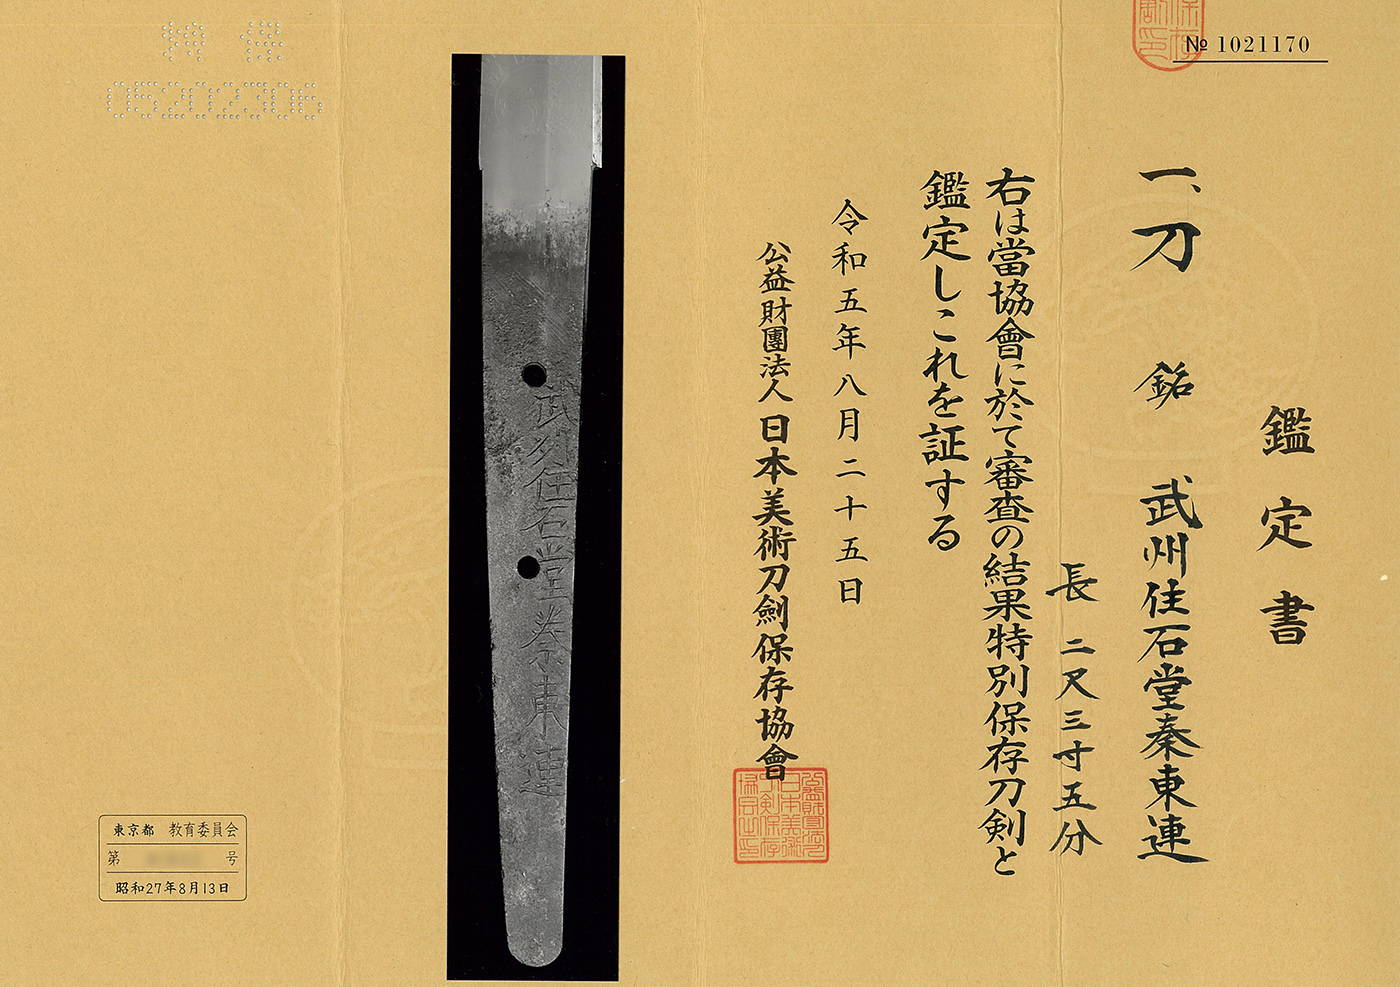 № 1021170
鑑定書
一、刀 銘 武州住石堂秦東連
長 二尺三寸五分
右は當協會に於て審査の結果特別保存刀剣と
鑑定しこれを証する
令和五年八月二十五日
公益財團法人 日本美術刀劍保存協會
武州住石堂秦東連
特 保
05202306
東京都 教育委員会
第 号
昭和27年8月13日